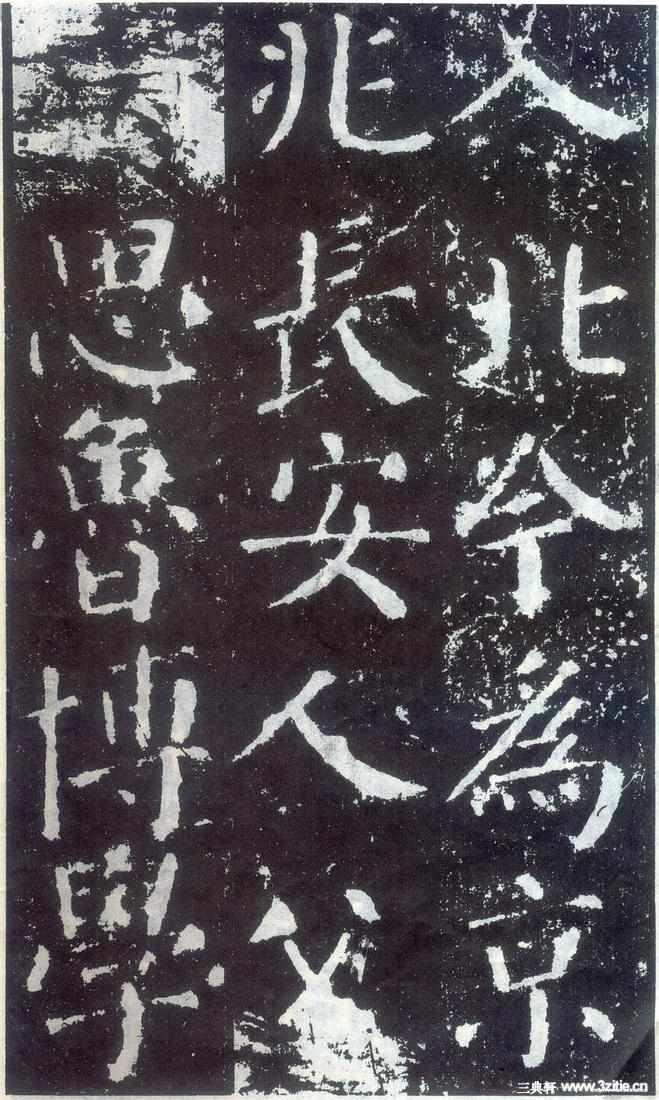 入北今為京
兆長安人父
思魯博學
三典軒 www.3zitie.cn